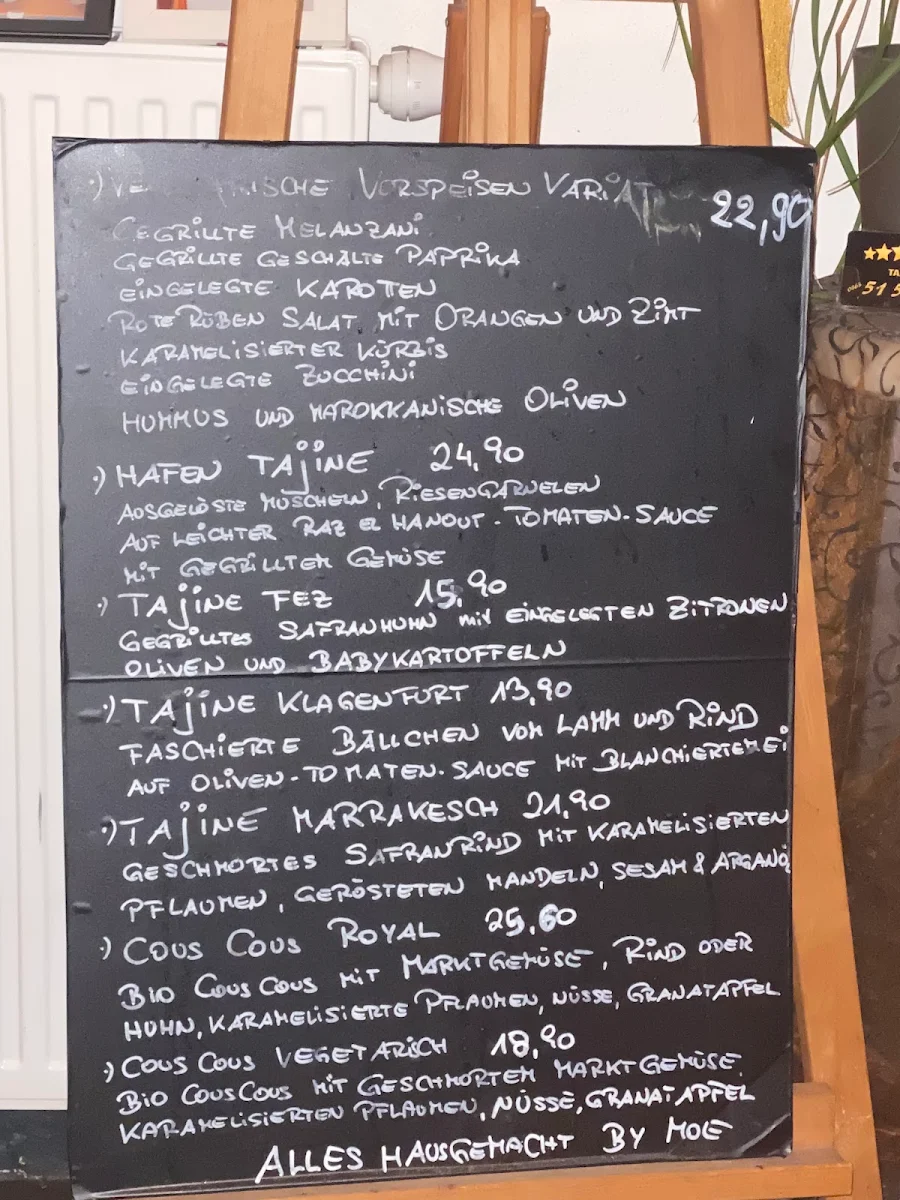 ·) VORSPEISEN
22,90
GEGRILLTE MELANZANI
GEGRILLTE GESCHÄLTE PAPRIKA
EINGELEGTE KAROTTEN
ROTE RÜBEN SALAT MIT ORANGEN UND ZIMT
KARAMELISIERTER KÜRBIS
EINGELEGTE ZUCCHINI
HUMMUS UND MAROKKANISCHE OLIVEN
·) HAFEN TAJINE 24,90
AUSGELÖSTE MUSCHELN, RIESENGARNELEN
AUF LEICHTER RAZ EL HANOUT-TOMATEN-SAUCE
MIT GEGRILLTEM GEMÜSE
·) TAJINE FEZ 15,90
GEGRILLTES SAFRANHUHN mit EINGELEGTEN ZITRONEN
OLIVEN UND BABYKARTOFFELN
·) TAJINE KLAGENFURT 13,90
FASCHIERTE BÄLLCHEN VOM LAMM UND RIND
AUF OLIVEN-TOMATEN-SAUCE MIT BLANCHIERTEM EI
·) TAJINE MARRAKESCH 21,90
GESCHMORTES SAFRANRIND MIT KARAMELISIERTEN
PFLAUMEN, GERÖSTETEN MANDELN, SESAM & ARGANÖL
·) COUS COUS ROYAL 25,60
BIO COUS COUS MIT MARKTGEMÜSE, RIND ODER
HUHN, KARAMELISIERTE PFLAUMEN, NÜSSE, GRANATAPFEL
·) COUS COUS VEGETARISCH 18,90
BIO COUSCOUS MIT GESCHMORTEM MARKTGEMÜSE
KARAMELISIERTEN PFLAUMEN, NÜSSE, GRANATAPFEL
ALLES HAUSGEMACHT BY MOE
TA
51 5